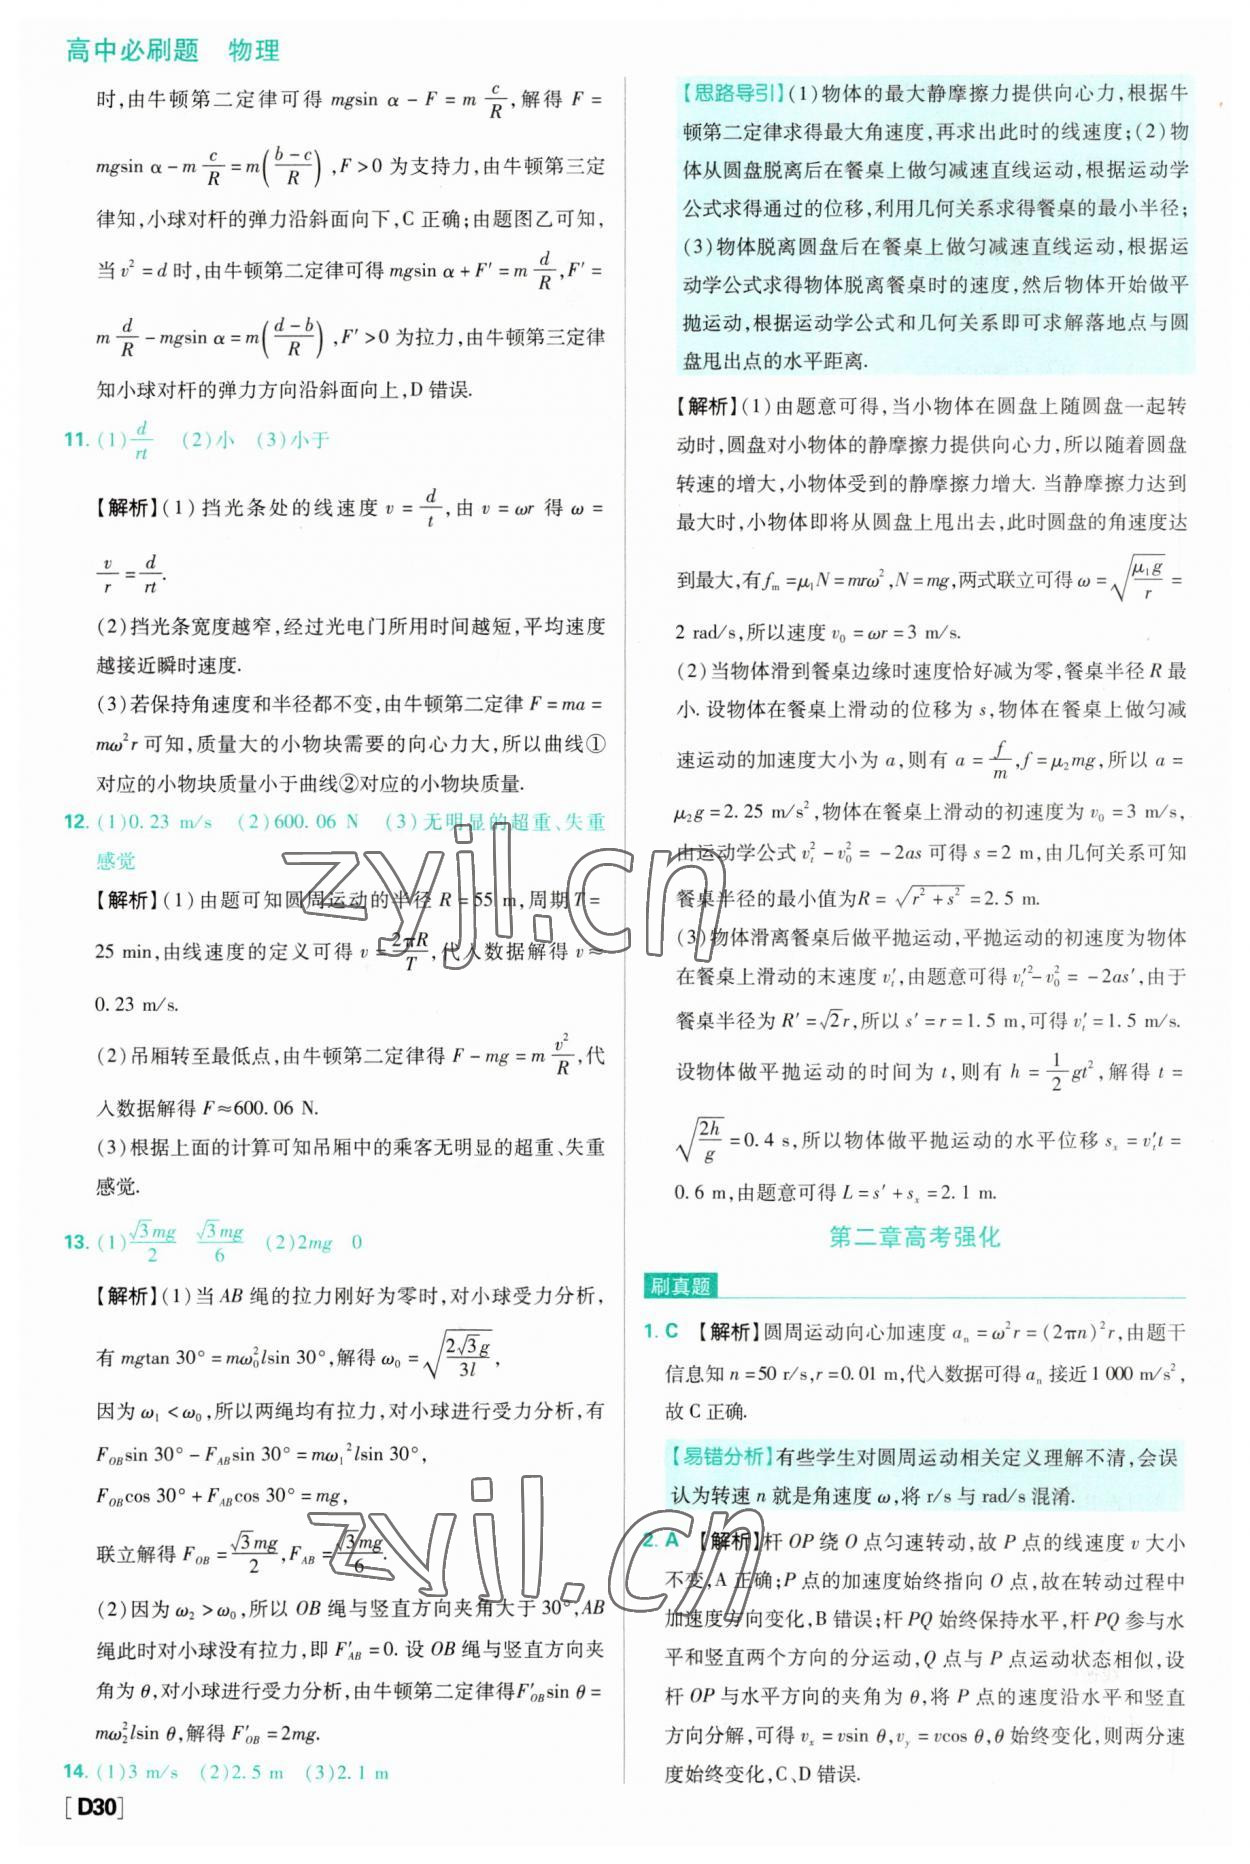 高中必刷题 物理
时,由牛顿第二定律可得 mgsin α - F = m c/R,解得 F =
mgsin α - m c/R = m((b-c)/R),F>0 为支持力,由牛顿第三定
律知,小球对杆的弹力沿斜面向下,C 正确;由题图乙可知,
当 v² = d 时,由牛顿第二定律可得 mgsin α + F′ = m d/R,F′ =
m d/R - mgsin α = m((d-b)/R),F′>0 为拉力,由牛顿第三定律
知小球对杆的弹力方向沿斜面向上,D 错误.
11. (1) d/rt (2)小 (3)小于
【解析】(1)挡光条处的线速度 v = d/t,由 v = ωr 得 ω =
v/r = d/rt.
(2)挡光条宽度越窄,经过光电门所用时间越短,平均速度
越接近瞬时速度.
(3)若保持角速度和半径都不变,由牛顿第二定律 F = ma =
mω²r 可知,质量大的小物块需要的向心力大,所以曲线①
对应的小物块质量小于曲线②对应的小物块质量.
12. (1)0.23 m/s (2)600.06 N (3)无明显的超重、失重
感觉
【解析】(1)由题可知圆周运动的半径 R = 55 m,周期 T =
25 min,由线速度的定义可得 v = 2πR/T,代入数据解得 v ≈
0.23 m/s.
(2)吊厢转至最低点,由牛顿第二定律得 F - mg = m v²/R,代
入数据解得 F≈600.06 N.
(3)根据上面的计算可知吊厢中的乘客无明显的超重、失重
感觉.
13. (1) √3mg/2 √3mg/6 (2)2mg 0
【解析】(1)当 AB 绳的拉力刚好为零时,对小球受力分析,
有 mgtan 30° = mω₀²lsin 30°,解得 ω₀ = √(2√3g/3l),
因为 ω₁ < ω₀,所以两绳均有拉力,对小球进行受力分析,有
F_OB sin 30° - F_AB sin 30° = mω₁²lsin 30°,
F_OB cos 30° + F_AB cos 30° = mg,
联立解得 F_OB = √3mg/2,F_AB = √3mg/6.
(2)因为 ω₂ > ω₀,所以 OB 绳与竖直方向夹角大于 30°,AB
绳此时对小球没有拉力,即 F′_AB = 0. 设 OB 绳与竖直方向夹
角为 θ,对小球进行受力分析,由牛顿第二定律得F′_OB sin θ =
mω₂²lsin θ,解得 F′_OB = 2mg.
14. (1)3 m/s (2)2.5 m (3)2.1 m
[D30]
【思路导引】(1)物体的最大静摩擦力提供向心力,根据牛
顿第二定律求得最大角速度,再求出此时的线速度;(2)物
体从圆盘脱离后在餐桌上做匀减速直线运动,根据运动学
公式求得通过的位移,利用几何关系求得餐桌的最小半径;
(3)物体脱离圆盘后在餐桌上做匀减速直线运动,根据运
动学公式求得物体脱离餐桌时的速度,然后物体开始做平
抛运动,根据运动学公式和几何关系即可求解落地点与圆
盘甩出点的水平距离.
【解析】(1)由题意可得,当小物体在圆盘上随圆盘一起转
动时,圆盘对小物体的静摩擦力提供向心力,所以随着圆盘
转速的增大,小物体受到的静摩擦力增大. 当静摩擦力达到
最大时,小物体即将从圆盘上甩出去,此时圆盘的角速度达
到最大,有 f_m = μ₁N = mrω²,N = mg,两式联立可得 ω = √(μ₁g/r) =
2 rad/s,所以速度 v₀ = ωr = 3 m/s.
(2)当物体滑到餐桌边缘时速度恰好减为零,餐桌半径 R 最
小. 设物体在餐桌上滑动的位移为 s,物体在餐桌上做匀减
速运动的加速度大小为 a,则有 a = f/m,f = μ₂mg,所以 a =
μ₂g = 2.25 m/s²,物体在餐桌上滑动的初速度为 v₀ = 3 m/s,
由运动学公式 v_t² - v₀² = -2as 可得 s = 2 m,由几何关系可知
餐桌半径的最小值为R = √(r² + s²) = 2.5 m.
(3)物体滑离餐桌后做平抛运动,平抛运动的初速度为物体
在餐桌上滑动的末速度 v′_t,由题意可得 v′_t² - v₀² = -2as′,由于
餐桌半径为 R′ = √2r,所以 s′ = r = 1.5 m,可得 v′_t = 1.5 m/s.
设物体做平抛运动的时间为 t,则有 h = 1/2 gt²,解得 t =
√(2h/g) = 0.4 s,所以物体做平抛运动的水平位移 s_x = v′_t t =
0.6 m,由题意可得 L = s′ + s_x = 2.1 m.
第二章高考强化
刷真题
1. C 【解析】圆周运动向心加速度 a_n = ω²r = (2πn)²r,由题干
信息知 n = 50 r/s,r = 0.01 m,代入数据可得 a_n 接近 1 000 m/s²,
故 C 正确.
【易错分析】有些学生对圆周运动相关定义理解不清,会误
认为转速 n 就是角速度 ω,将 r/s 与 rad/s 混淆.
2. A 【解析】杆 OP 绕 O 点匀速转动,故 P 点的线速度 v 大小
不变,A 正确;P 点的加速度始终指向 O 点,故在转动过程中
加速度方向变化,B 错误;杆 PQ 始终保持水平,杆 PQ 参与水
平和竖直两个方向的分运动,Q 点与 P 点运动状态相似,设
杆 OP 与水平方向的夹角为 θ,将 P 点的速度沿水平和竖直
方向分解,可得 v_x = vsin θ,v_y = vcos θ,θ 始终变化,则两分速
度始终变化,C、D 错误.
zyjl.cn
zyjl.cn